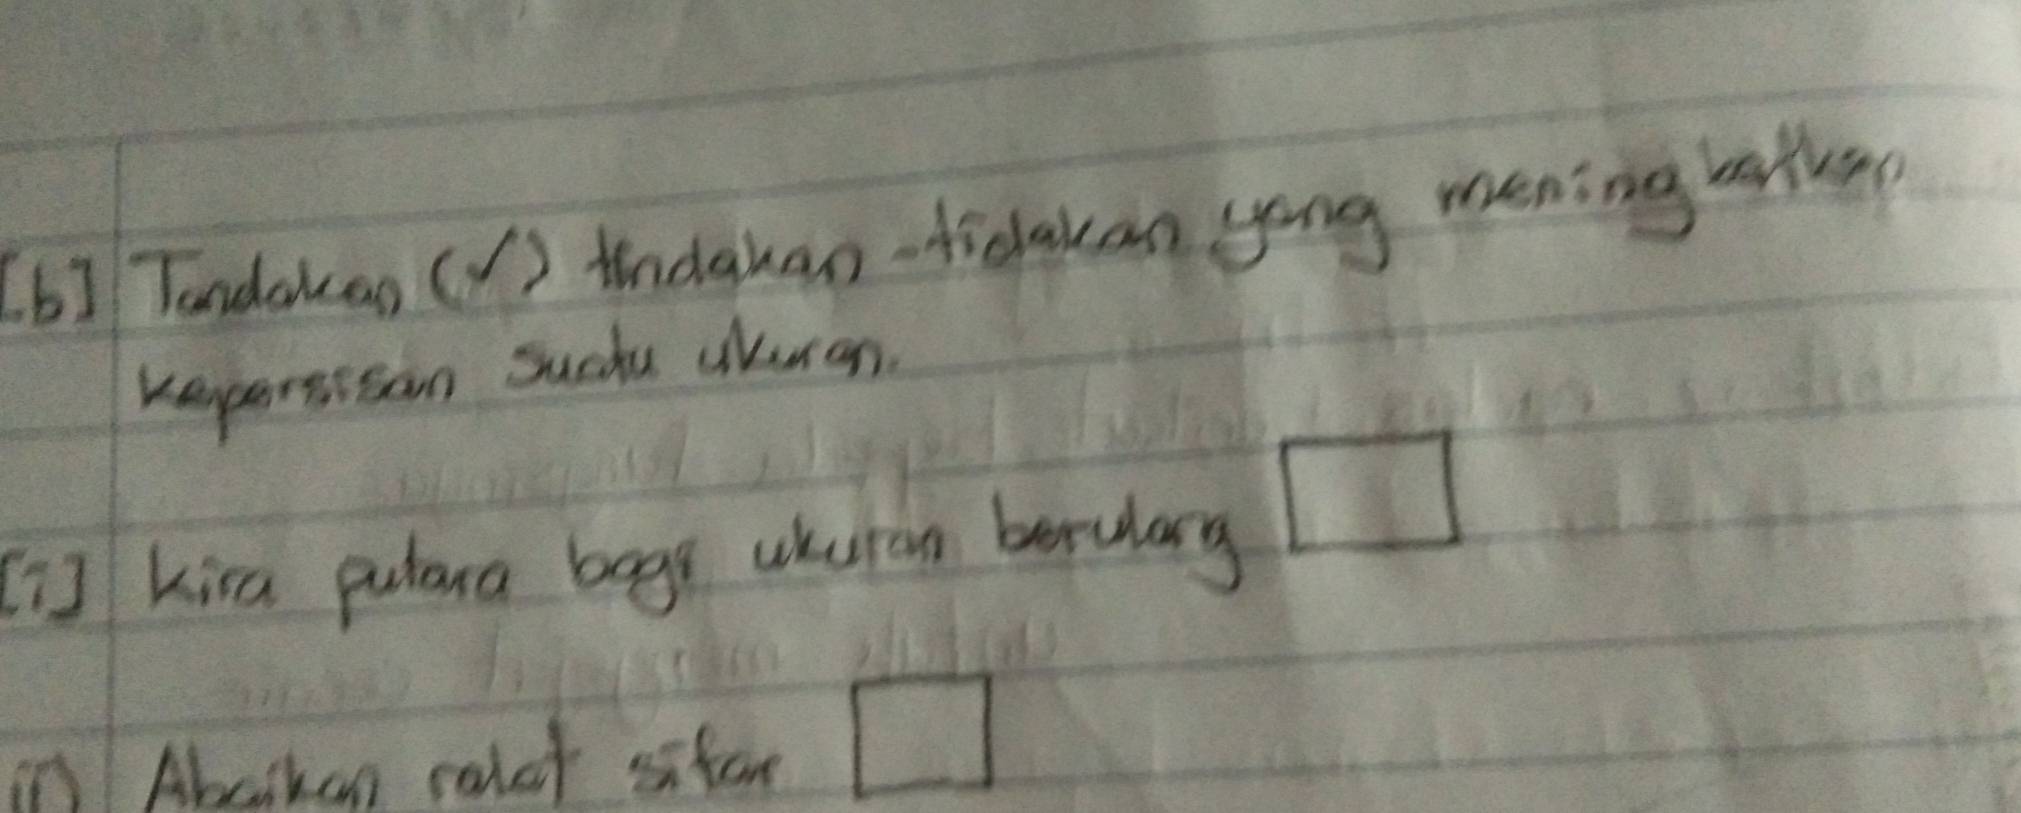 [b] Tandakan (√) tindakan-tidakan yang meningkatkan
kepersisan suatu ukuran.
[i] Kira putara bagi ukuran berulang
(ii) Abaikan ralat sifar